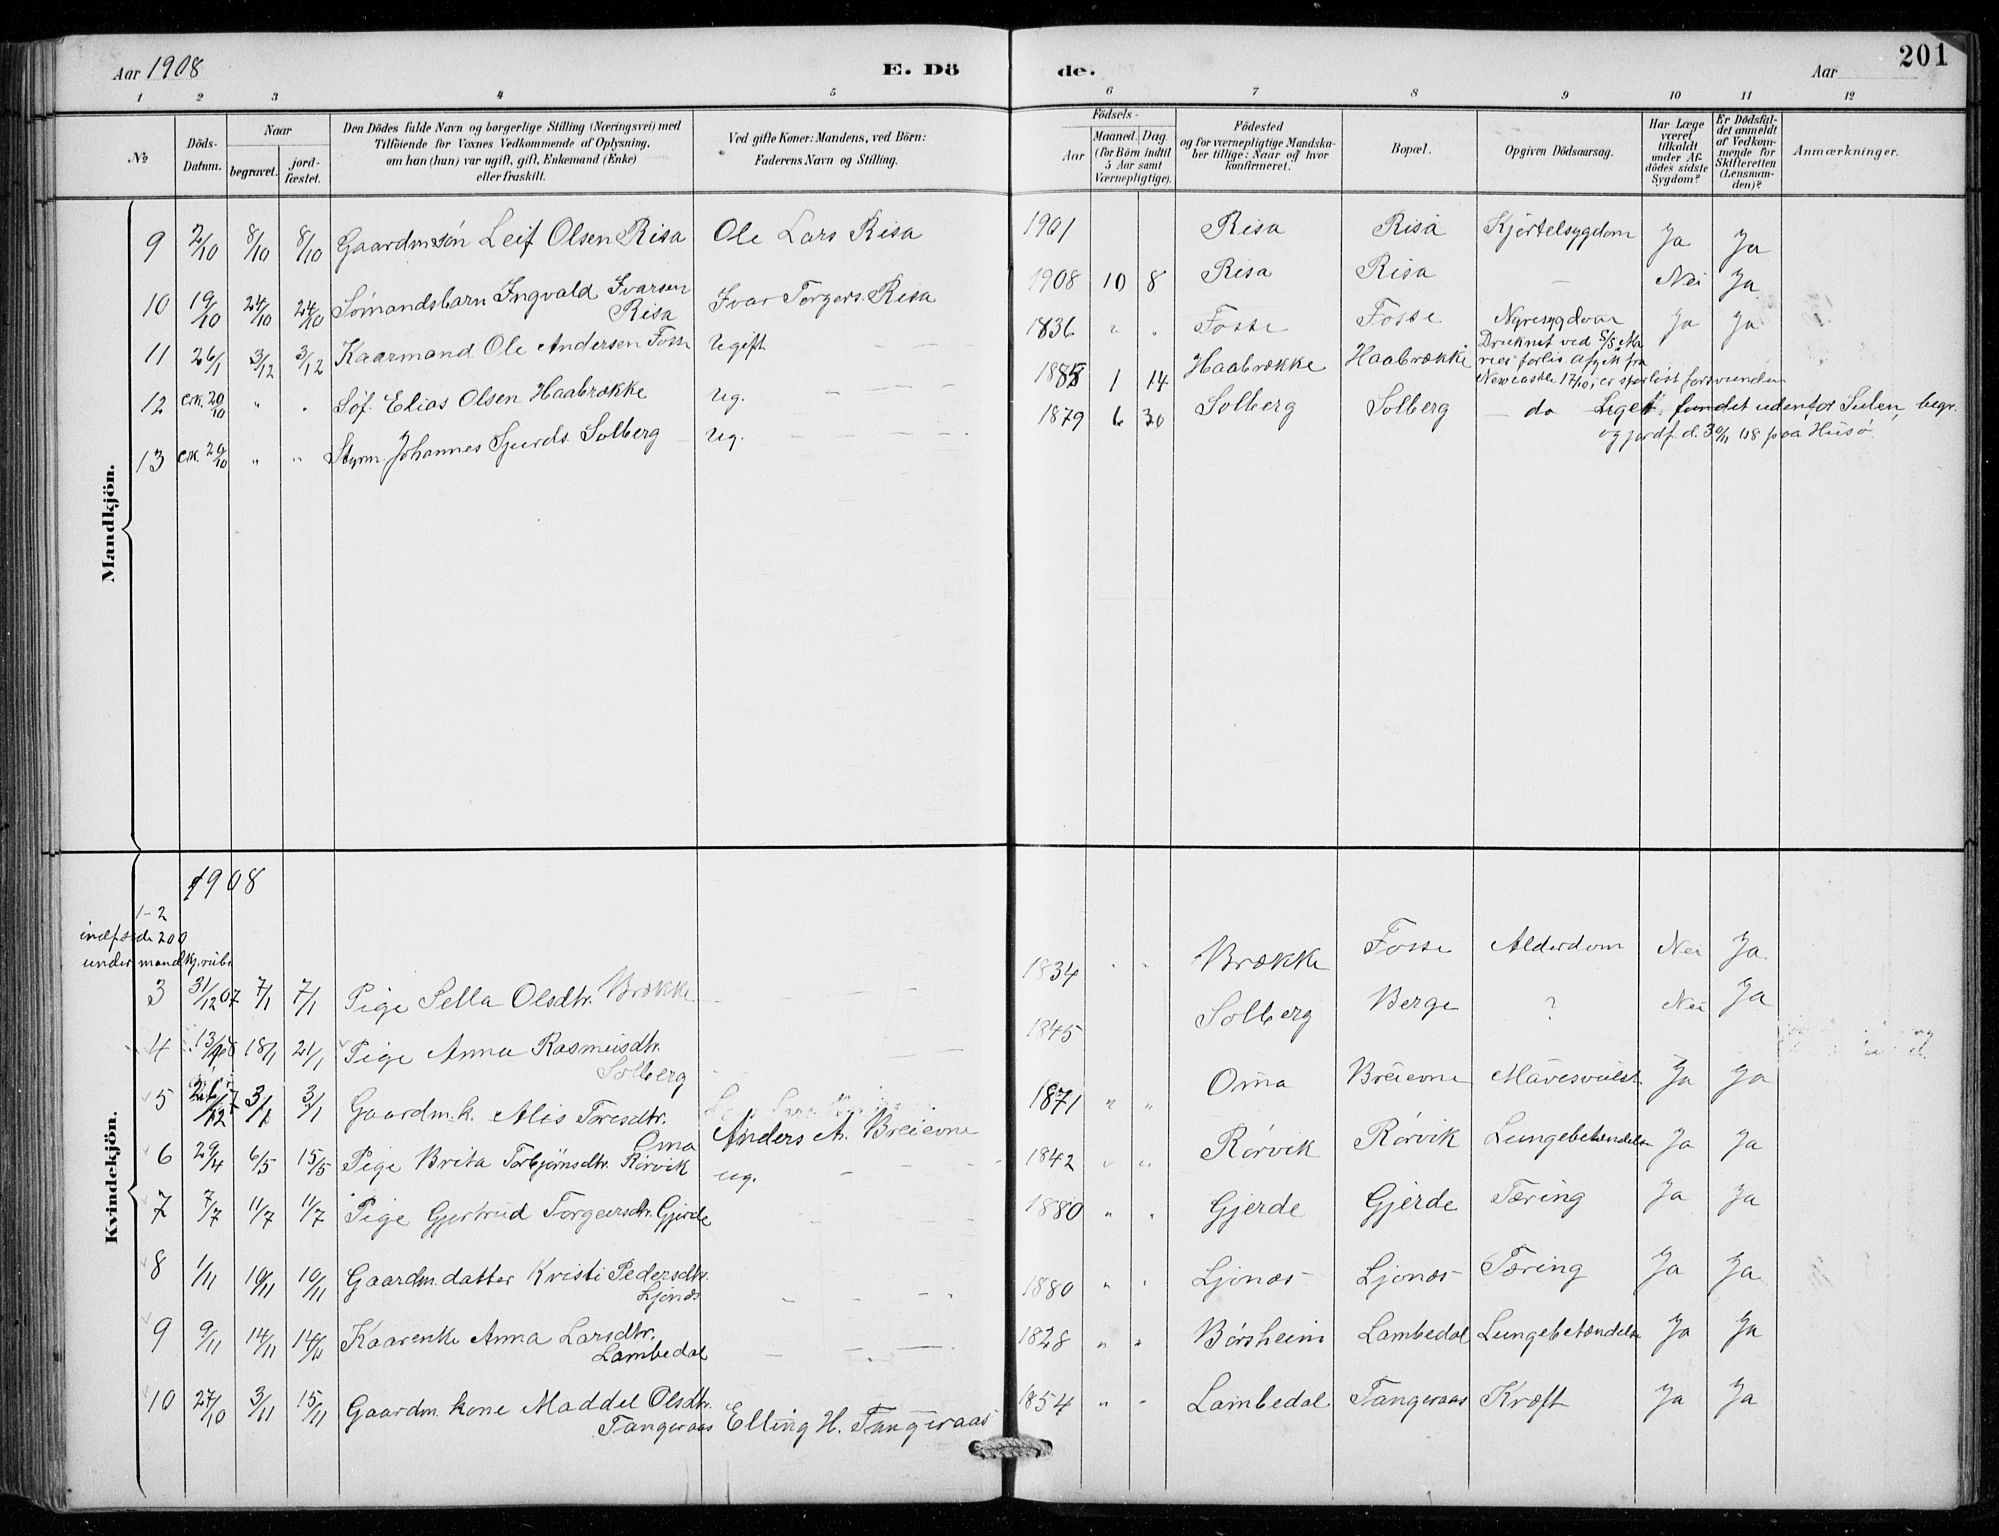 Aar 1908
E. Dö
de.
Aar
201
1 2 3 4 5 6 7 8 9 10 11 12
No
Döds-Datum.
Naar
begravet.
jord-fæstet.
Den Dödes fulde Navn og borgerlige Stilling (Næringsvei) med
Tilföiende for Voxnes Vedkommende af Oplysning,
om han (hun) var ugift, gift, Enkemand (Enke)
eller fraskilt.
Ved gifte Koner: Mandens, ved Börn:
Faderens Navn og Stilling.
Födsels-
Aar
Maaned. Dag.
(for Börn indtil
5 Aar samt
Værnepligtige).
Födested
og for værnepligtige Mandska-
ber tillige: Naar og hvor
konfirmeret.
Bopæl.
Opgiven Dödsaarsag.
Har Læge
været
tilkaldt
under Af-
dödes sidste
Sygdom?
Er Dödsfal-
det anmeldt
af Vedkom-
mende for
Skifteretten
(Lensman-
den)?
Anmærkninger.
Mandkjön.
9 2/10 8/10 8/10 Gaardm.søn Leif Olsen Risa Ole Lars Risa 1901 Risa Risa Kjertelsygdom Ja Ja
10 19/10 24/10 24/10 Sømandsbarn Ingvald Ivarsen
Risa Ivar Torgers. Risa 1908 10 8 Risa Risa — Nei Ja
11 26/1 3/12 3/12 Kaarmand Ole Andersen Fosse Ugift 1836 " " Fosse Fosse Nyresygdom Ja Ja
12 crk. 20/10 " " Søf. Elias Olsen Haabrække Ug. 1 14 Haabrække Haabrække Druknet ved S/S Ma
ries forlis. Afgik fra
Newcastle 17/10, er sporløst forsvunden
13 crk. 20/10 " " Styrm. Johannes Sjurds. Solberg Ug. 1879 6 30 Solberg Solberg — do Liget fundet udenfor Sulen, begr.
og jordf. d. 30/11 08 paa Husø.
Kvindekjön.
1908
1-2
indførte 200
under mandkj. rubr.
3 31/12 07 7/1 7/1 Pige Sella Olsdtr. Brække 1834 " " Brække Fosse Alderdom Nei Ja
4 13/1 08 18/1 21/1 Pige Anna Rasmusdtr.
Solberg 1845 Solberg Berge ? Nei Ja
5 3/1 3/1 Gaardm.k. Alis Toresdtr.
Oma Anders A. Breievne 1871 " " Oma Breievne Mavesvulst Ja Ja
6 29/4 6/5 15/5 Pige Brita Torbjørnsdtr. Rørvik ug. 1842 " " Rørvik Rørvik Lungebetændelse Ja Ja
7 7/7 11/7 11/7 Pige Gjertrud Torgeirsdtr. Gjerde 1880 " " Gjerde Gjerde Tæring Ja Ja
8 1/11 10/11 10/11 Gaardm. datter Kristi Pedersdtr.
Ljonæs 1880 " " Ljonæs Ljonæs Tæring Ja Ja
9 9/11 14/11 14/11 Kaarenke Anna Larsdtr.
Lambedal 1828 " " Børsheim Lambedal Lungebetændelse Ja Ja
10 27/10 3/11 15/11 Gaardm. kone Maddel Olsdtr.
Tangeraas Elling H. Tangeraas 1854 " " Lambedal Tangeraas Kræft Ja Ja